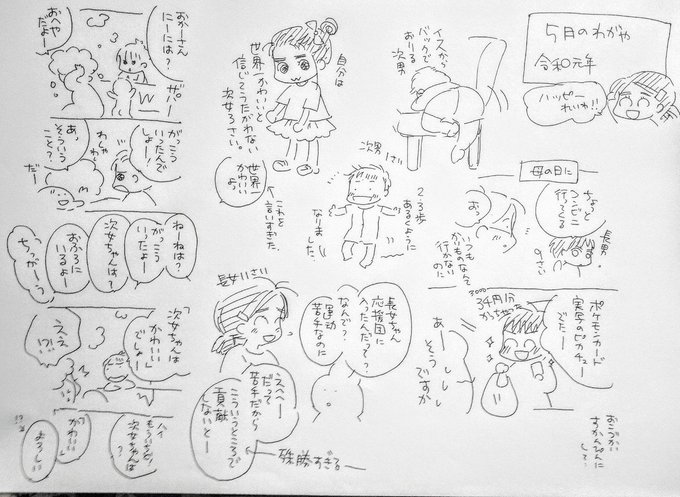 5月のわがや
令和元年
ハッピー
れいわ!!
イスから
バックで
おりる
次男
自分は
世界一かわいいと
信じてうたがわない
次女3さい。
世界一
かわいい
よ。
←これを
言いすぎた。
次男
1さい
2、3歩
あるくように
なりました。
母の日に
ちょっと
コンビニ
行ってくる
長男
9さい
おっ
いつも
かいものなんて
行かない
のに
ポケモンカード
実写のピカチュー
でたー!
34円分
かっちゃった
あーしししし
そうですか
おこづかい
すかんぴんに
して…
長女11さい
長女ちゃん
応援団に
入ったんだって?
なんで?
運動
苦手なのに
えへへー
だって
苦手だから
こういうところで
貢献
しないとー
←殊勝すぎるー
おかーさん
にーには?
おへや
だよー
ザバー
がっこう
いったんで
しょー!
わしゃ
わしゃ
あ、
そういう
こと?
だー
ねーねは?
がっこう
いったよー
次女ちゃんは?
おふろに
いるよー
ちっがーう
次女ちゃんは
「かわいい」
でしょー!
ええ…
ハイ
もういちど!
次女ちゃんは
?
「かわいい」
よろしい